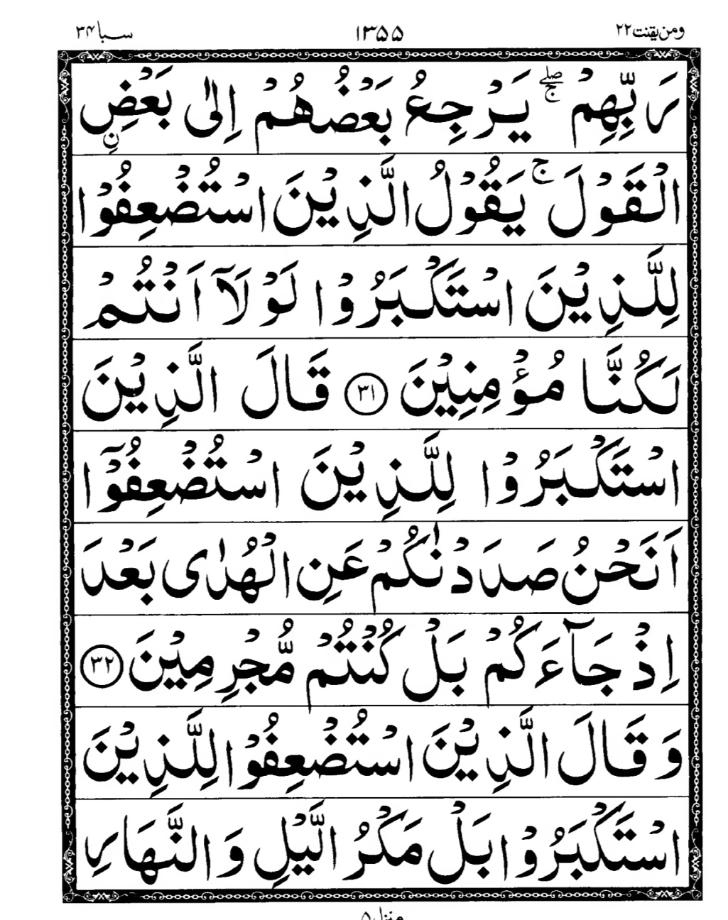 ومن یقنت ۲۲ ۱۳۵۵ سبا ۳۴
رَبِّهِمْ ۚۖ يَرْجِعُ بَعْضُهُمْ اِلٰى بَعْضِ
ِۨالْقَوْلَ ۚ يَقُوْلُ الَّذِيْنَ اسْتُضْعِفُوْا
لِلَّذِيْنَ اسْتَكْبَرُوْا لَوْلَاۤ اَنْتُمْ
لَكُنَّا مُؤْمِنِيْنَ ﴿۳۱﴾ قَالَ الَّذِيْنَ
اسْتَكْبَرُوْا لِلَّذِيْنَ اسْتُضْعِفُوْۤا
اَنَحْنُ صَدَدْنٰكُمْ عَنِ الْهُدٰى بَعْدَ
اِذْ جَآءَكُمْ بَلْ كُنْتُمْ مُّجْرِمِيْنَ ﴿۳۲﴾
وَقَالَ الَّذِيْنَ اسْتُضْعِفُوْا لِلَّذِيْنَ
اسْتَكْبَرُوْا بَلْ مَكْرُ الَّيْلِ وَالنَّهَارِ
منزل ۵